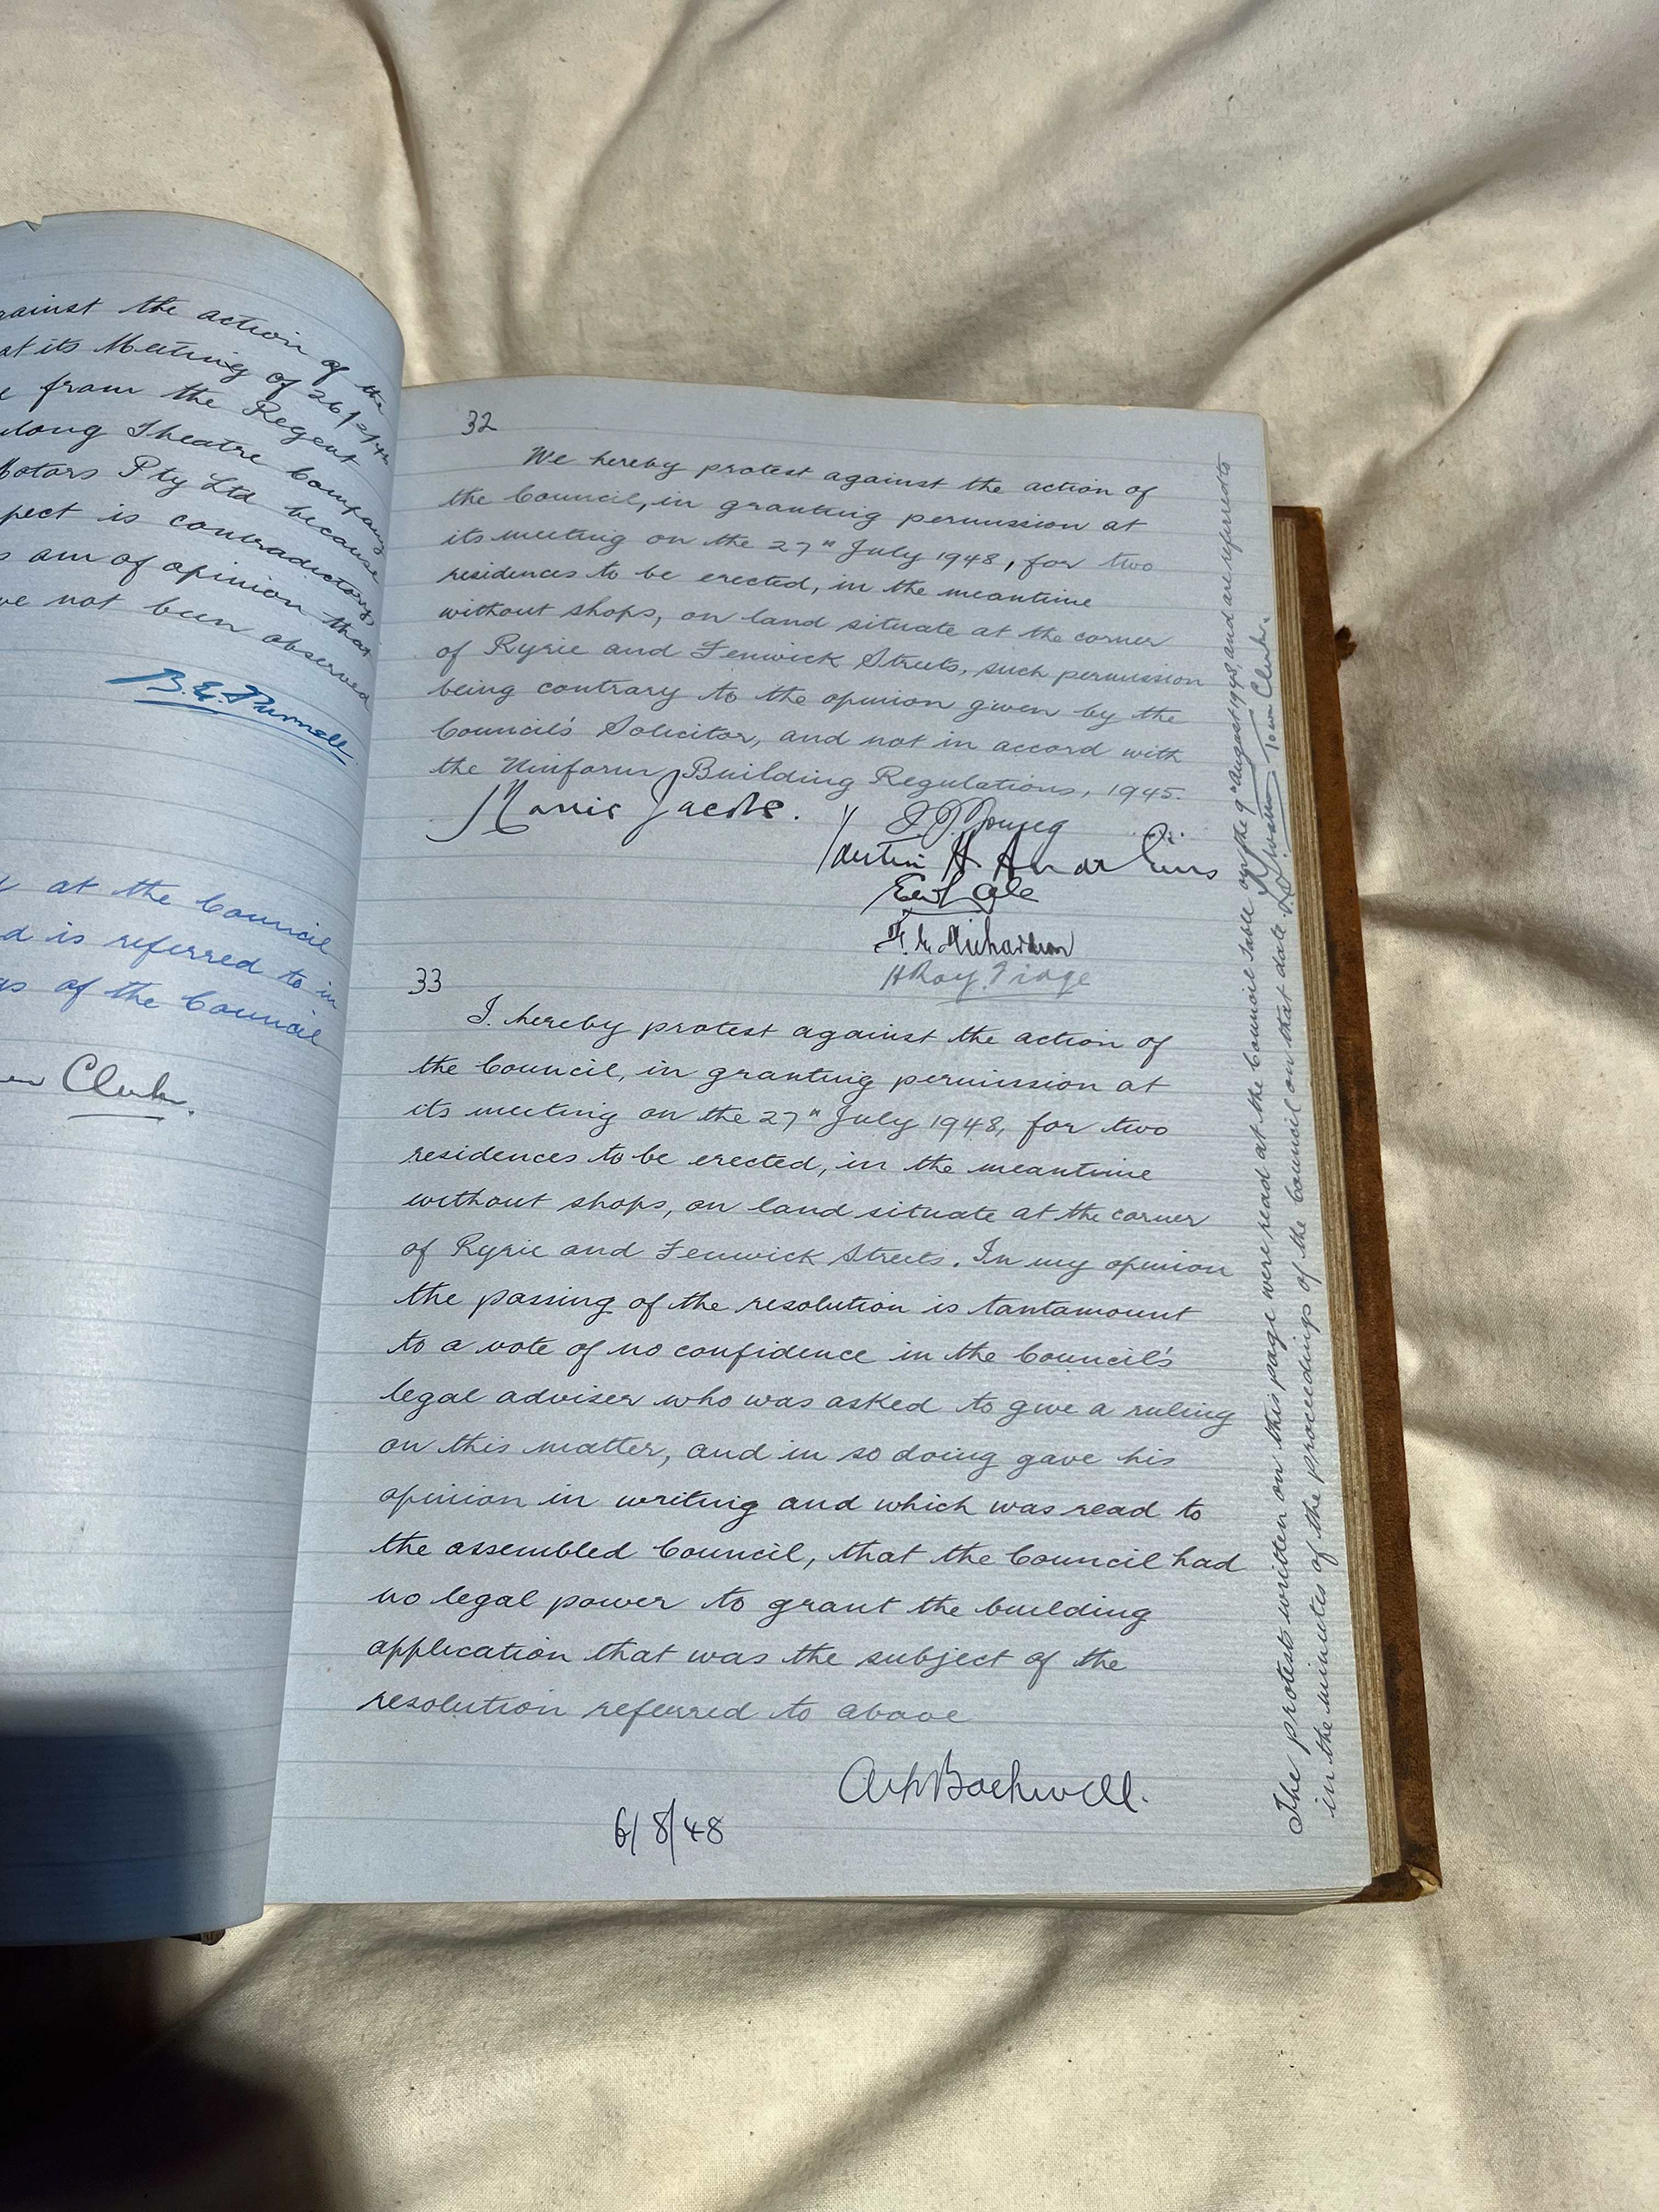 gainst the action of the
at its Meeting of
from the Regent
Theatre Company
Motors Pty Ltd because
pect is contradictory
am of opinion that
ve not been observed
at the Council
d is referred to in
of the Council
Clerk.
32
We hereby protest against the action of
the Council, in granting permission at
its meeting on the 27th July 1948, for two
residences to be erected, in the meantime
without shops, on land situate at the corner
of Ryrie and Fenwick Streets, such permission
being contrary to the opinion given by the
Council's Solicitor, and not in accord with
the Uniform Building Regulations, 1945.
Jacobs.
Young
Richardson
H Roy Fidge
33
I hereby protest against the action of
the Council, in granting permission at
its meeting on the 27th July 1948, for two
residences to be erected, in the meantime
without shops, on land situate at the corner
of Ryrie and Fenwick Streets. In my opinion
the passing of the resolution is tantamount
to a vote of no confidence in the Council's
legal adviser who was asked to give a ruling
on this matter, and in so doing gave his
opinion in writing and which was read to
the assembled Council, that the Council had
no legal power to grant the building
application that was the subject of the
resolution referred to above
6/8/48
The protests written on this page were read at the Council table on the 9th August 1948, and are referred to
in the minutes of the proceedings of the Council on that date. Town Clerk.